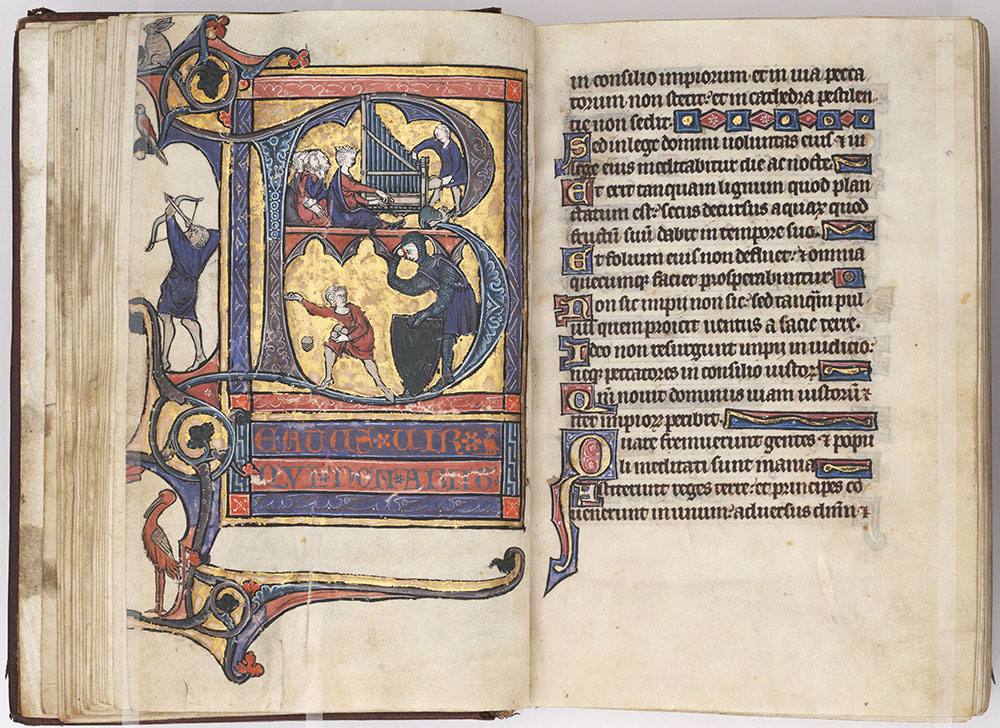 B
EATUS VIR
QUI NON ABIIT
in consilio impiorum et in uia pecca
torum non stetit: et in cathedra pestilen
tie non sedit.
Sed in lege domini uoluntas eius & in
lege eius meditabitur die ac nocte.
Et erit tanquam lignum quod plan
tatum est: secus decursus aquaꝝ quod
fructū suū dabit in tempore suo.
Et folium eius non defluet: & omnia
quecunqꝫ faciet prosperabuntur.
Non sic impii non sic: sed tanq̄m pul
uis quem proicit uentus a facie terre.
Ideo non resurgunt impii in iudicio:
neqꝫ peccatores in consilio iustoꝝ
Qm̄ nouit dominus uiam iustorū &
iter impioꝝ peribit.
Quare fremuerunt gentes & popu
li meditati sunt inania.
Astiterunt reges terre: et principes cō
uenerunt in unum: aduersus dn̄m &